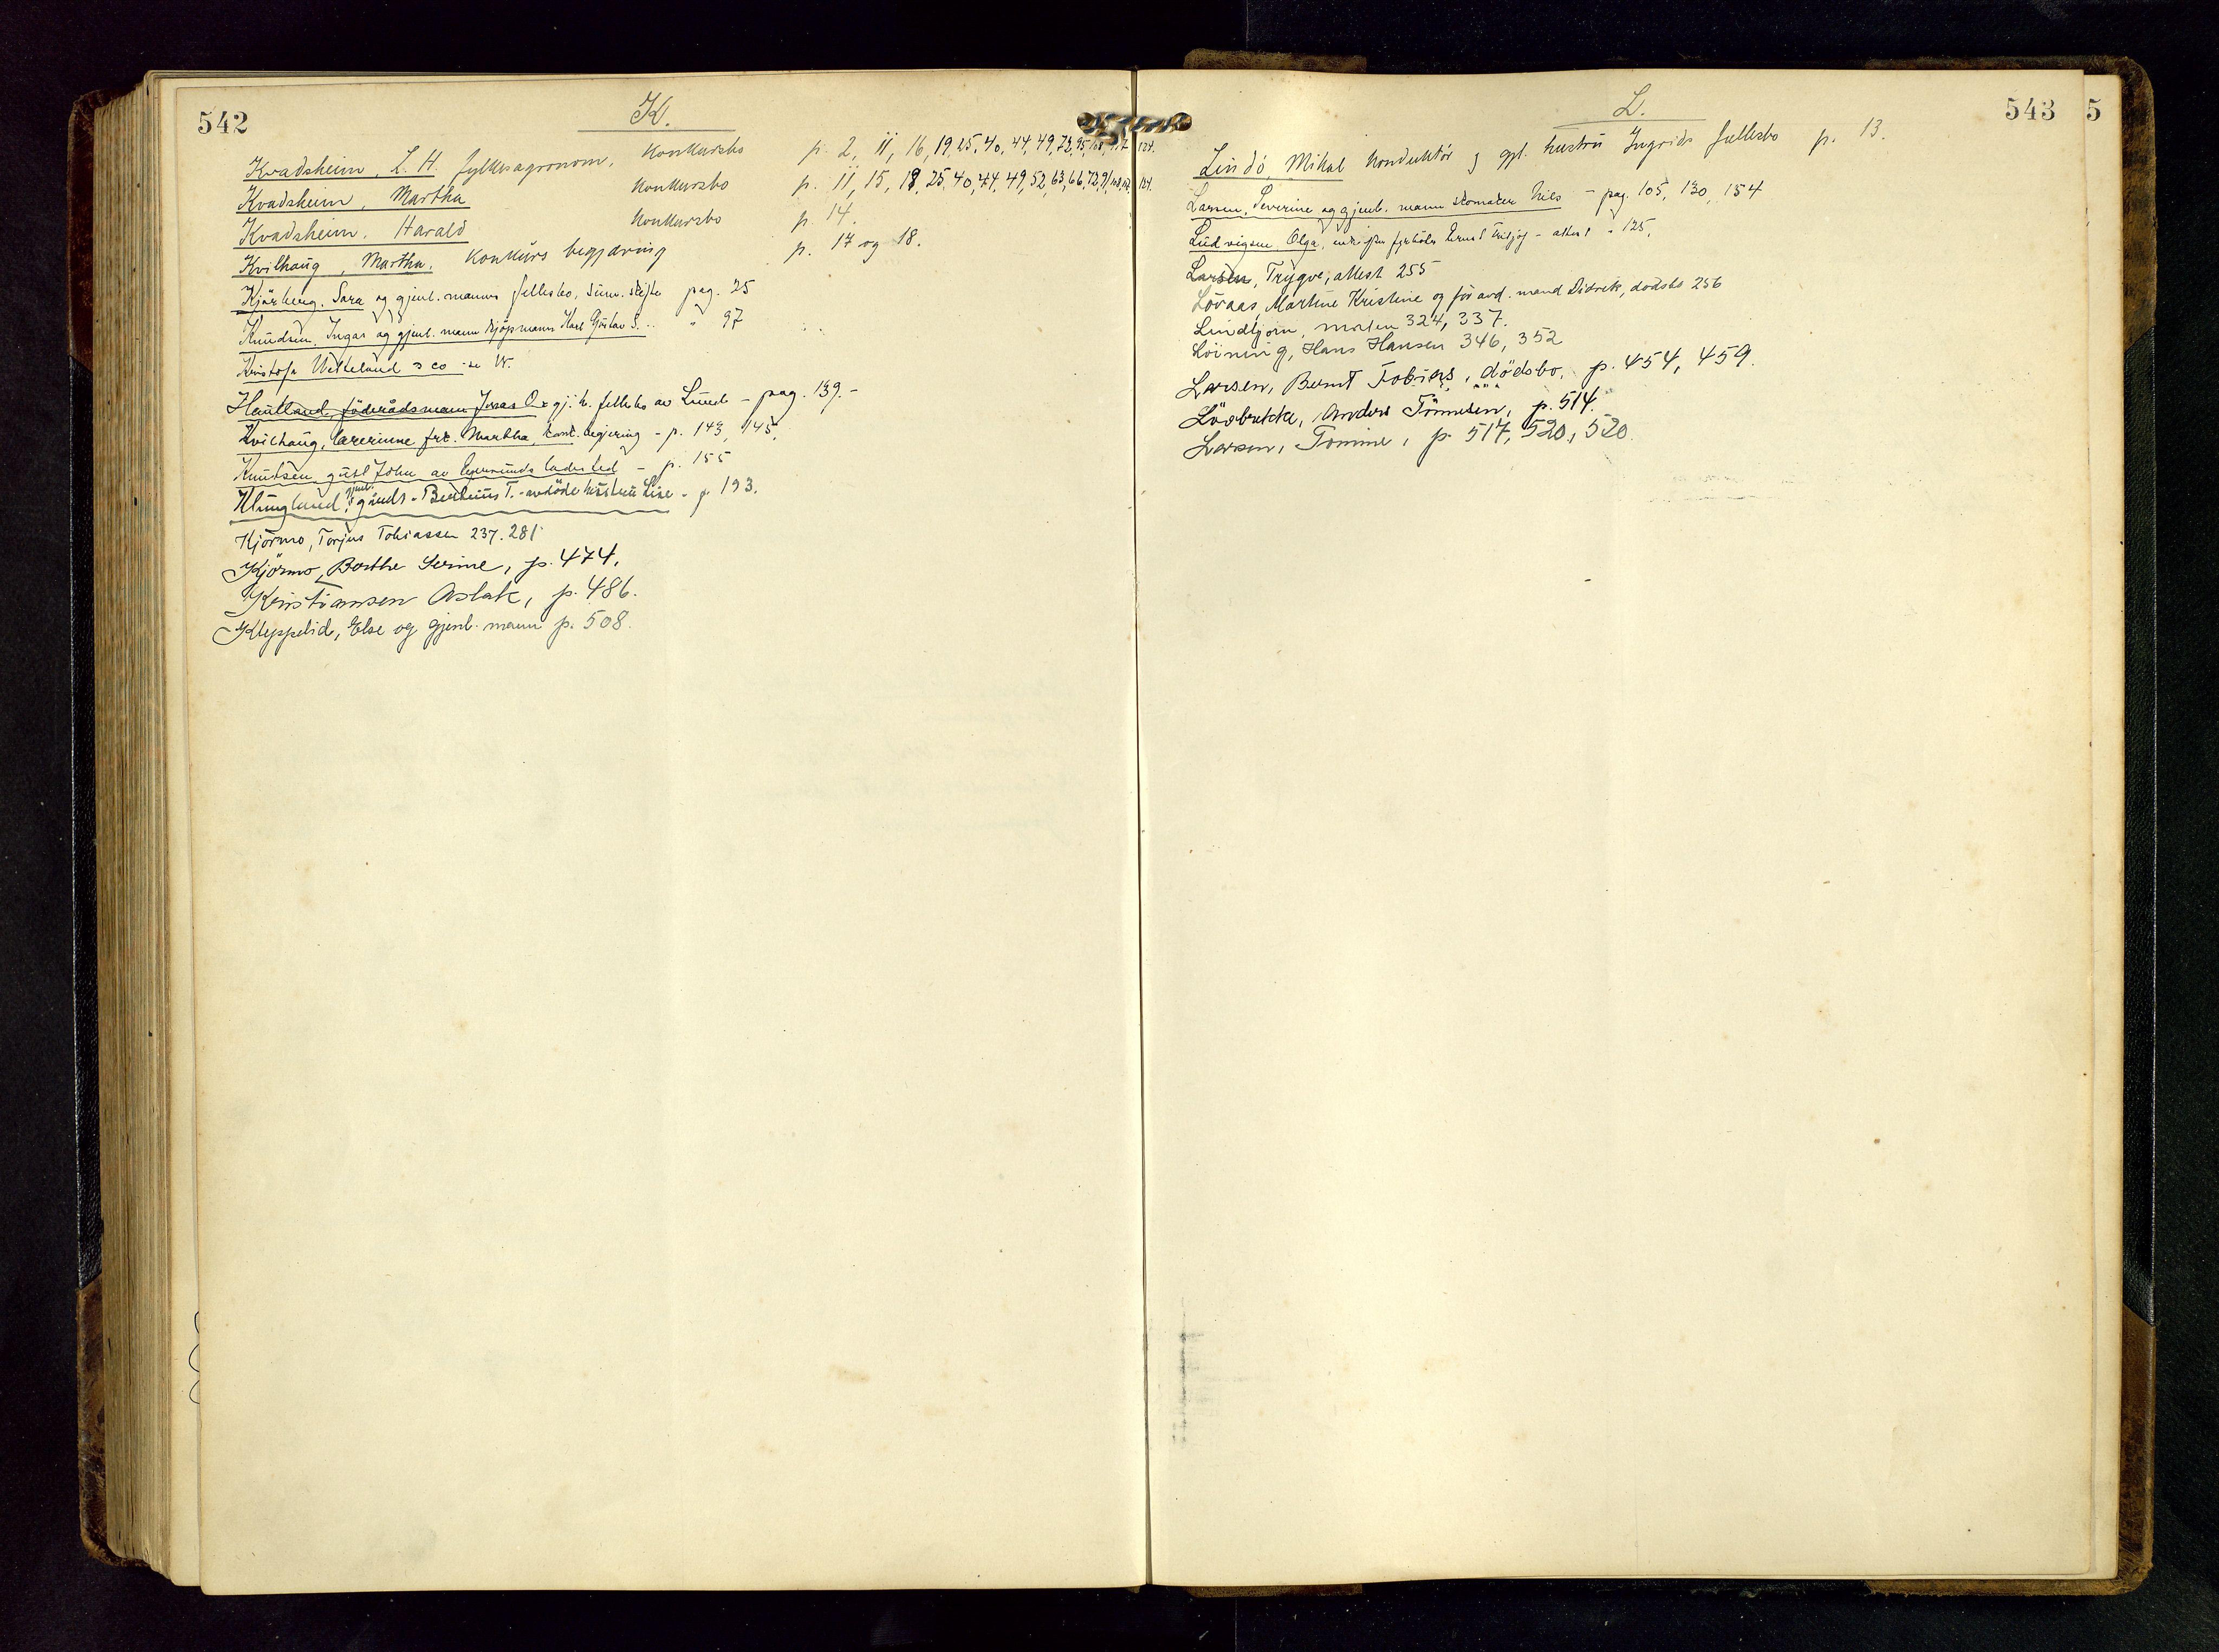 542
K.
Kvadsheim, L. H. fylkesagronom, konkursbo p. 2, 11, 16, 19, 25, 40, 44, 49, 72, 95, 108, 117, 124.
Kvadsheim, Martha konkursbo p. 11, 15, 18, 25, 40, 44, 49, 52, 63, 66, 72, 91, 124.
Kvadsheim, Harald konkursbo p. 14.
Kvilhaug, Martha, konkurs begjæring p. 17 og 18.
Kjörberg, Sara og gjenl. manns fellesbo, sum. skifte pag. 25
Knudsen, Ingar og gjenl. mann kjöpmann Karl Gustav S. .. " 97
Kristofa Vetteland & co se V.
Hautland, föderådsmann Jonas O. gj. h. fellesbo av Lund - pag. 139.-
Kvilhaug, lærerinne frk. Martha, konk. begjering - p. 143, 145,
Knutsen gutt John av Egersunds ladested - p. 155
Klungland, gjenl. gårdb. Bertinius T. - avdöde hustru Lise - p 193.
Kjörmo, Torjus Tobiassen 237. 281
Kjörmo, Berthe Serine, p. 474.
Kristiansen Aslak, p. 486.
Kleppelid, Else og gjenl. mann p. 508.
543
5
L.
Lindö, Mikal konduktör og gjl. hustru Ingrids fellesbo p. 13.
Larsen, Severine og gjenl. mann skomaker Nils - pag. 105, 130, 154
Ludvigsen, Olga, fyrböter Bernt - attest " 125,
Larsen, Trygve, attest 255
Lövaas, Martine Kristine og för avd. mand Didrik, dödsbo 256
Lindtjörn, malen 324, 337.
Löining, Hans Hansen 346, 352
Larsen, Bernt Tobias, dödsbo, p. 454, 459.
Lövbrekke, Anders Tönnesen, p. 514.
Larsen, Tomine, p. 517, 520, 520.